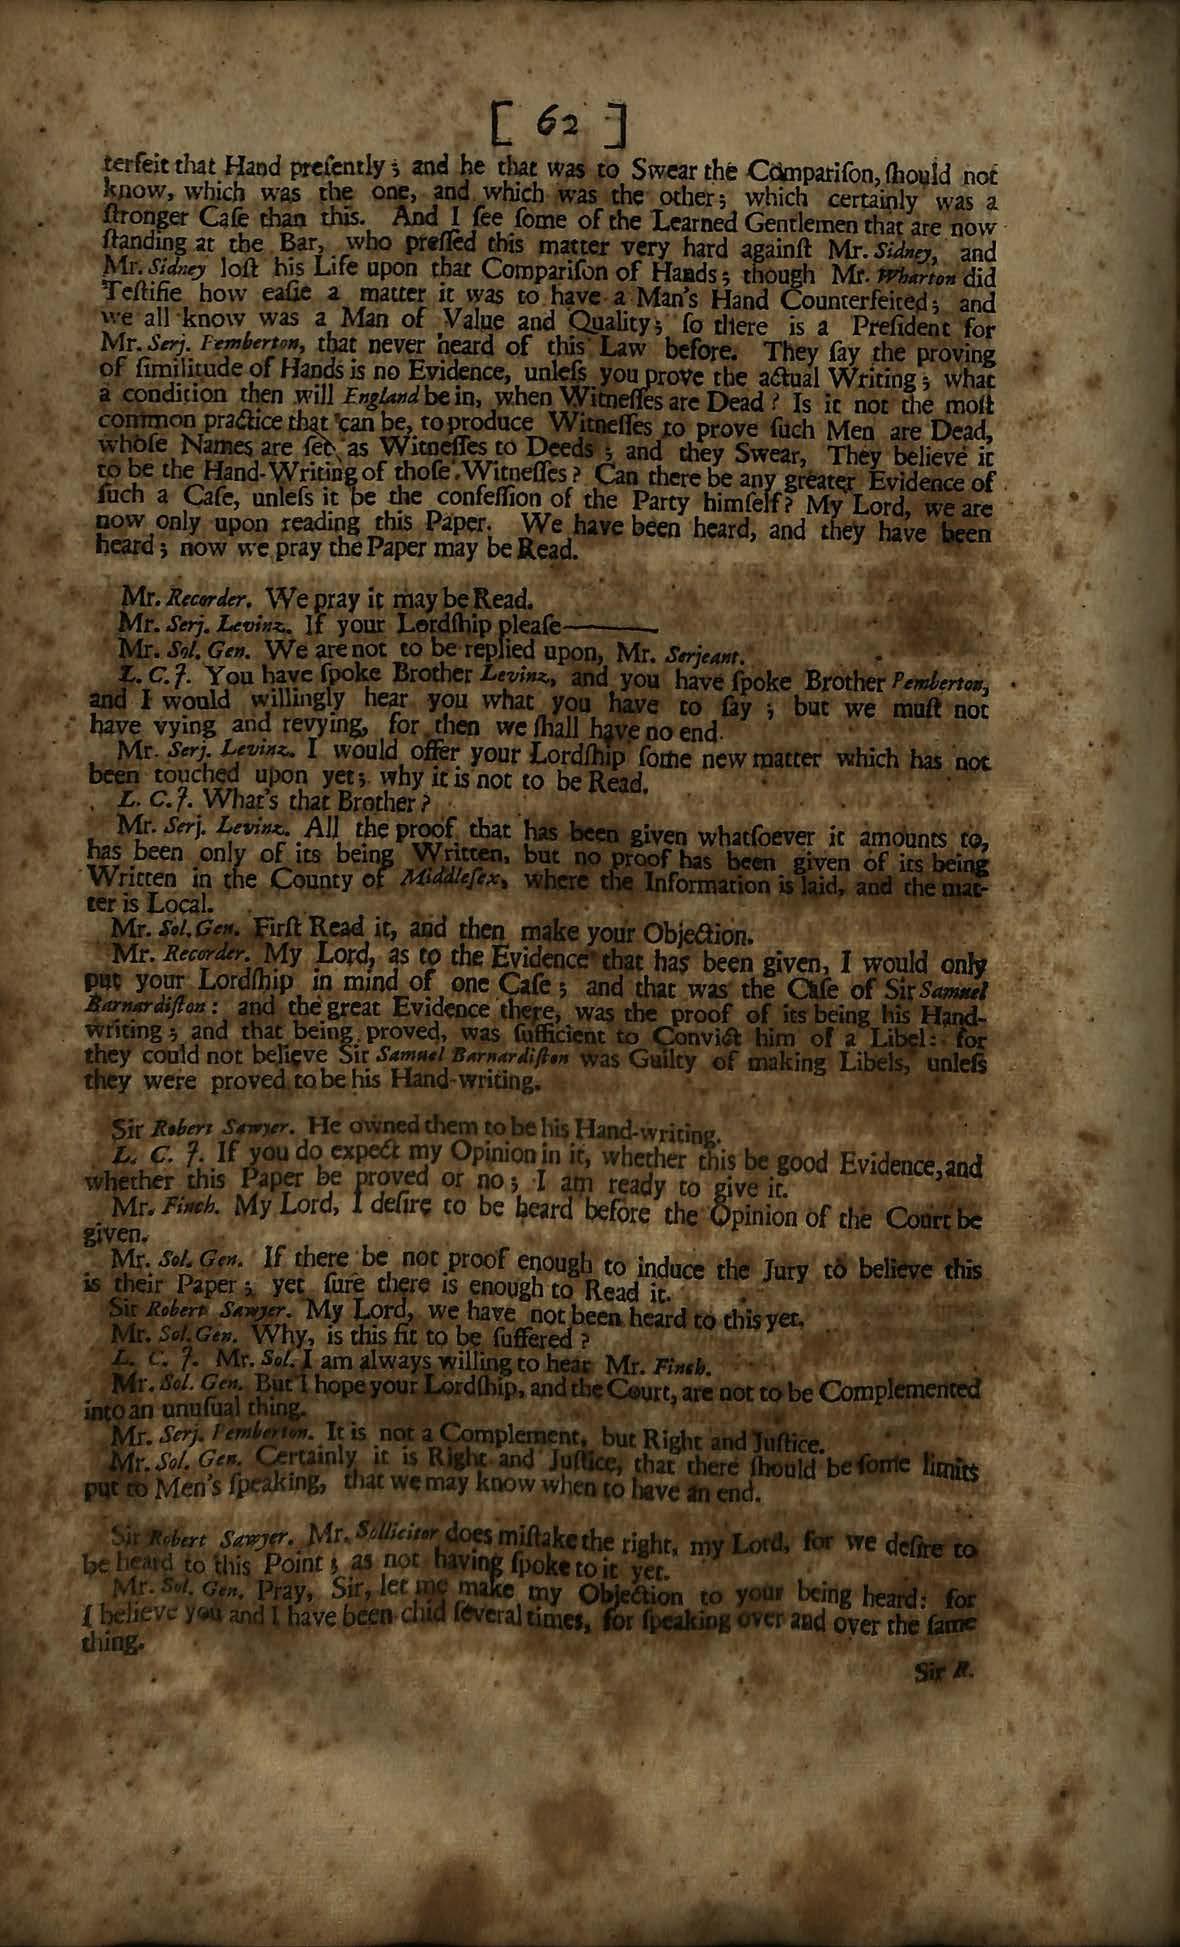 [ 62 ]
terfeit that Hand preſently; and he that was to Swear the Compariſon, ſhould not
know, which was the one, and which was the other; which certainly was a
ſtronger Caſe than this. And I ſee ſome of the Learned Gentlemen that are now
ſtanding at the Bar, who preſſed this matter very hard againſt Mr. Sidney, and
Mr. Sidney loſt his Life upon that Compariſon of Hands; though Mr. Wharton did
Teſtifie how eaſie a matter it was to have a Man's Hand Counterfeited; and
we all know was a Man of Value and Quality; ſo there is a Preſident for
Mr. Serj. Pemberton, that never heard of this Law before. They ſay the proving
of ſimilitude of Hands is no Evidence, unleſs you prove the actual Writing; what
a condition then will England be in, when Witneſſes are Dead? Is it not the moſt
common practice that can be, to produce Witneſſes to prove ſuch Men are Dead,
whoſe Names are ſet as Witneſſes to Deeds; and they Swear, They believe it
to be the Hand-Writing of thoſe Witneſſes? Can there be any greater Evidence of
ſuch a Caſe, unleſs it be the confeſſion of the Party himſelf? My Lord, we are
now only upon reading this Paper. We have been heard, and they have been
heard; now we pray the Paper may be Read.
Mr. Recorder. We pray it may be Read.
Mr. Serj. Levinz. If your Lordſhip pleaſe———
Mr. Sol. Gen. We are not to be replied upon, Mr. Serjeant.
L. C. J. You have ſpoke Brother Levinz, and you have ſpoke Brother Pemberton,
and I would willingly hear you what you have to ſay; but we muſt not
have vying and revying, for then we ſhall have no end.
Mr. Serj. Levinz. I would offer your Lordſhip ſome new matter which has not
been touched upon yet; why it is not to be Read.
L. C. J. What's that Brother?
Mr. Serj. Levinz. All the proof that has been given whatſoever it amounts to,
has been only of its being Written, but no proof has been given of its being
Written in the County of Middleſex, where the Information is laid, and the mat-
ter is Local.
Mr. Sol. Gen. Firſt Read it, and then make your Objection.
Mr. Recorder. My Lord, as to the Evidence that has been given, I would only
put your Lordſhip in mind of one Caſe; and that was the Caſe of Sir Samuel
Barnardiſton: and the great Evidence there, was the proof of its being his Hand-
writing; and that being proved, was ſufficient to Convict him of a Libel: for
they could not believe Sir Samuel Barnardiſton was Guilty of making Libels, unleſs
they were proved to be his Hand-writing.
Sir Robert Sawyer. He owned them to be his Hand-writing.
L. C. J. If you do expect my Opinion in it, whether this be good Evidence, and
whether this Paper be proved or no; I am ready to give it.
Mr. Finch. My Lord, I deſire to be heard before the Opinion of the Court be
given.
Mr. Sol. Gen. If there be not proof enough to induce the Jury to believe this
is their Paper; yet ſure there is enough to Read it.
Sir Robert Sawyer. My Lord, we have not been heard to this yet.
Mr. Sol. Gen. Why, is this fit to be ſuffered?
L. C. J. Mr. Sol. I am always willing to hear Mr. Finch.
Mr. Sol. Gen. But I hope your Lordſhip, and the Court, are not to be Complemented
into an unuſual thing.
Mr. Serj. Pemberton. It is not a Complement, but Right and Juſtice.
Mr. Sol. Gen. Certainly it is Right and Juſtice, that there ſhould be ſome limits
put to Men's ſpeaking, that we may know when to have an end.
Sir Robert Sawyer. Mr. Sollicitor does miſtake the right, my Lord, for we deſire to
be heard to this Point; as not having ſpoke to it yet.
Mr. Sol. Gen. Pray, Sir, let me make my Objection to your being heard: for
I believe you and I have been chid ſeveral times, for ſpeaking over and over the ſame
thing.
Sir R.